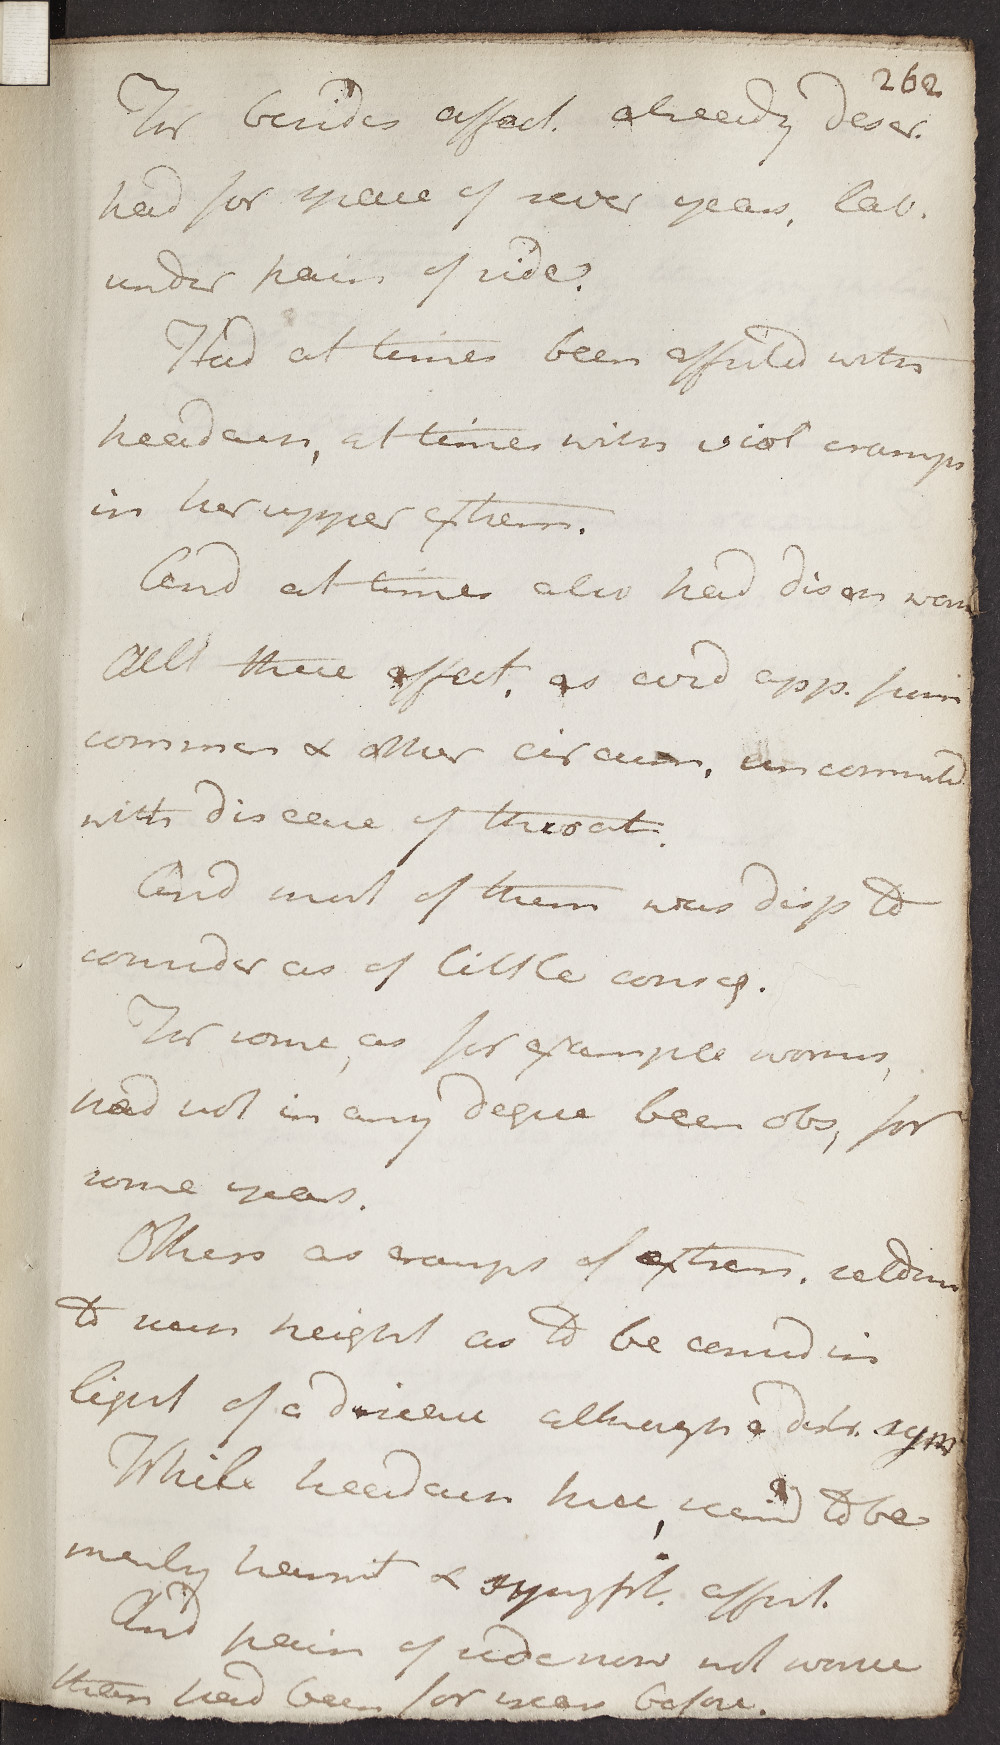 262
For besides affect. already descr.
had for space of sever years, lab.
under pain of side.
Had at times been afflicted with
headach, at times with viol cramps
in her upper extrem.
And at times also had disch worm
All these affect. as could app. from
commen & other circum, unconnected
with disease of throat.
And most of them was disp to
consider as of little conseq.
For some, as for example worms,
had not in any degree been obs, for
some years.
Others as cramps of extrem. seldom
to such height as to be consid in
light of a disease although a distr. sym
While headach here, seemd to be
merely & sympt. affect.
And pain of side now not worse
than had been for years before.